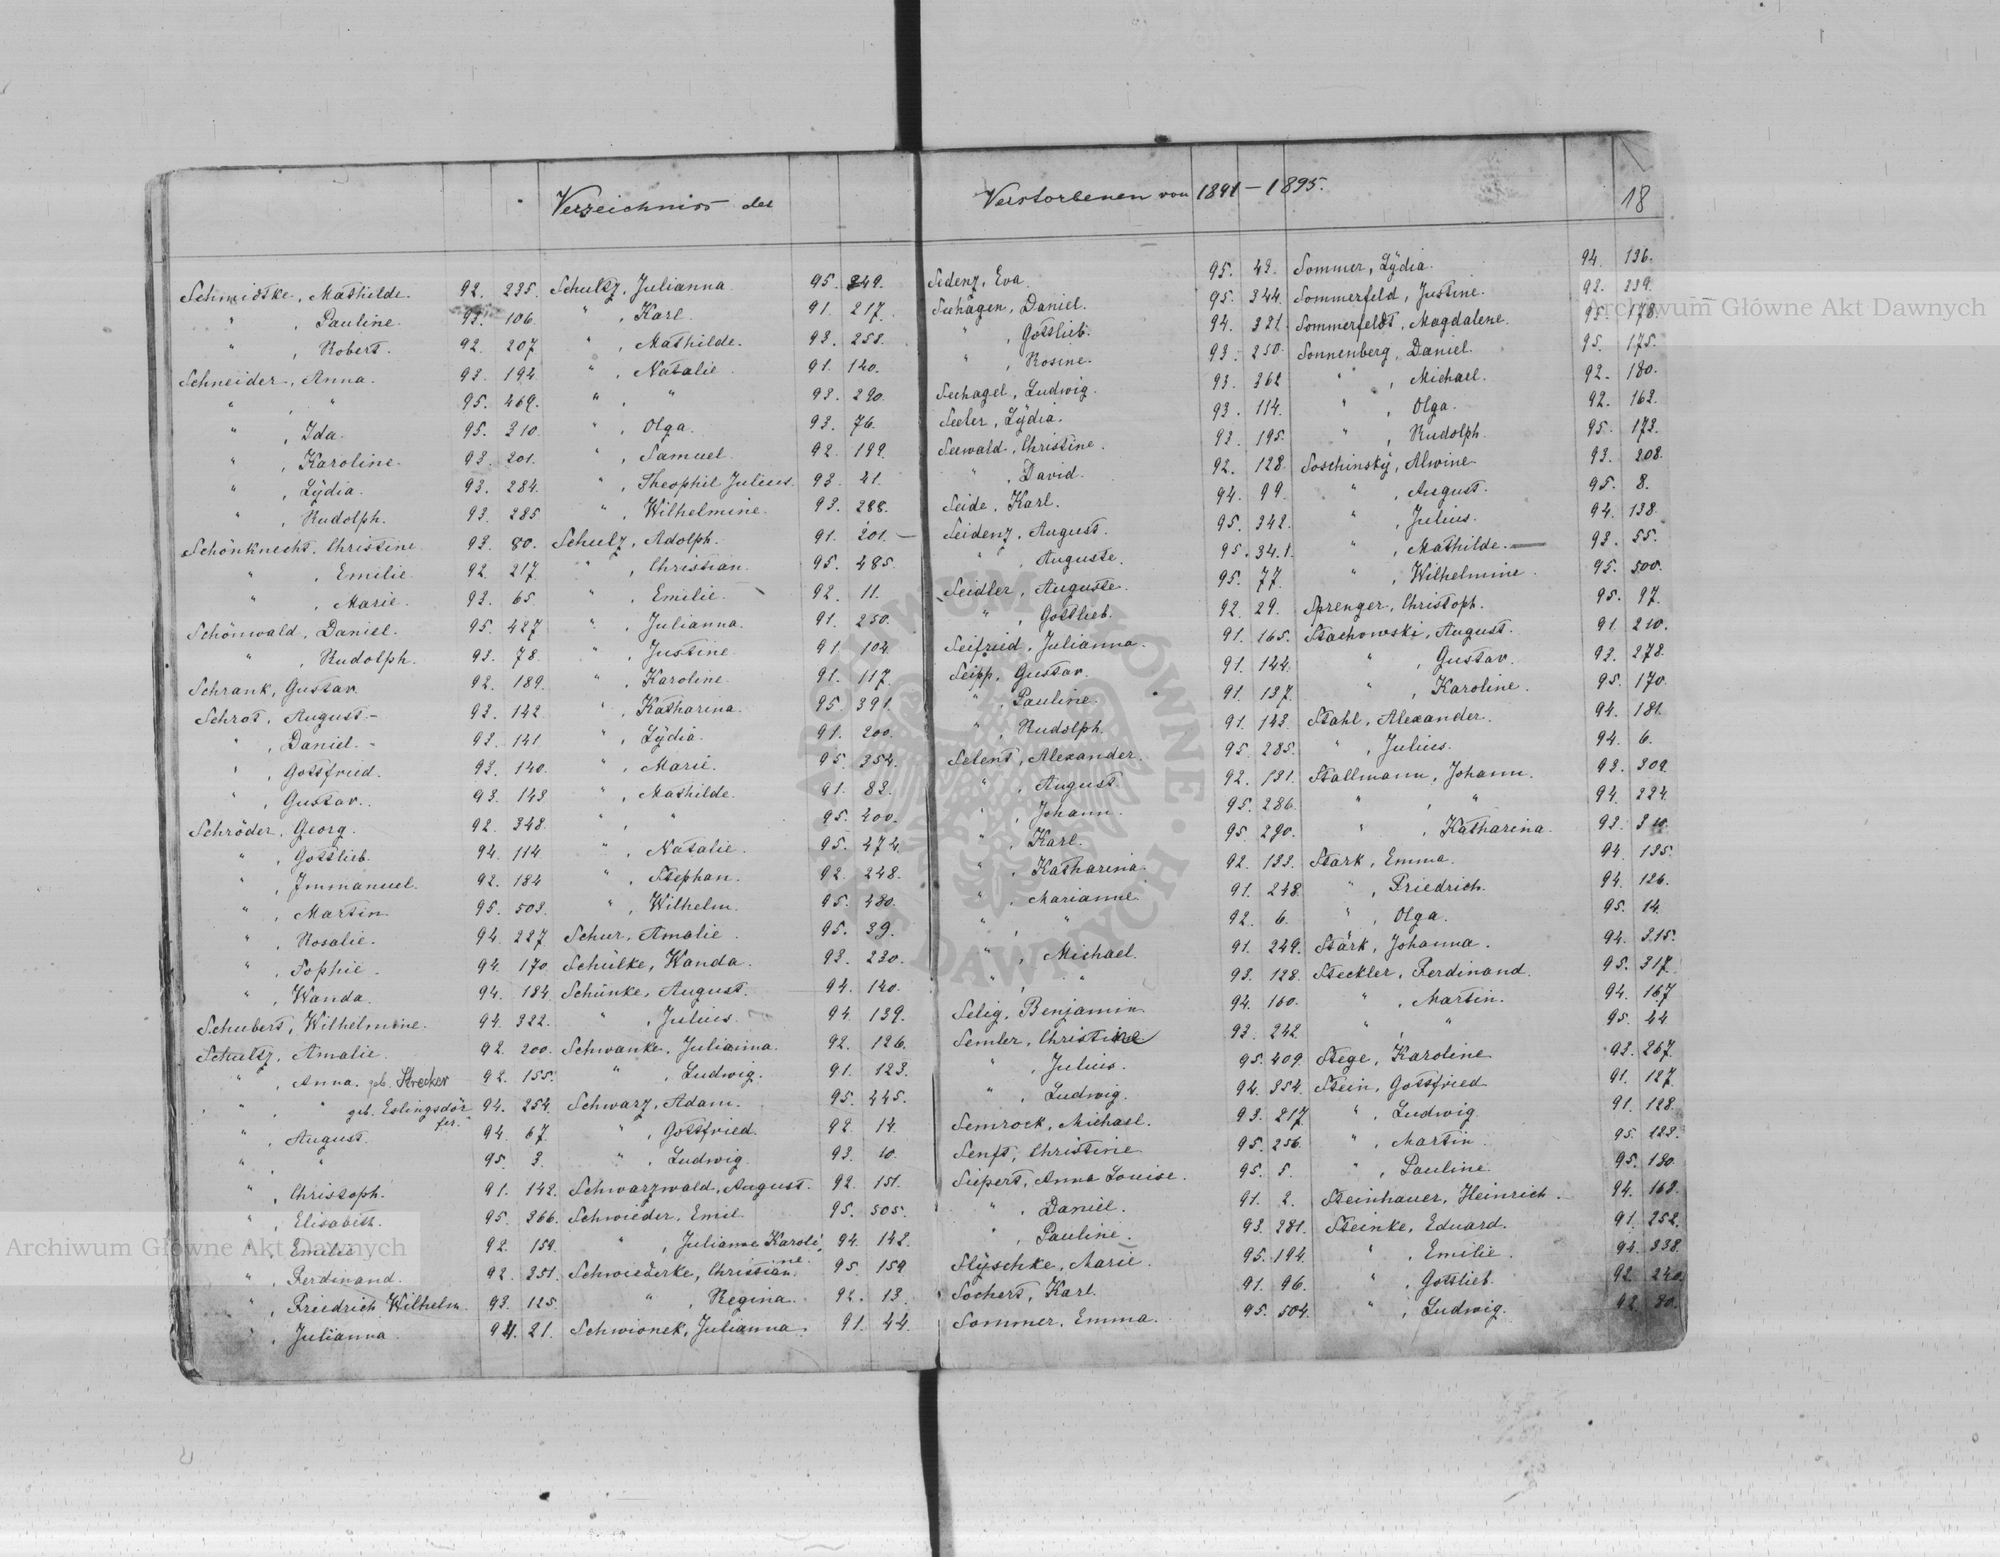 Verzeichniss der
Verstorbenen von 1891–1895.
18
Schmidtke, Mathilde. 92. 235.
" , Pauline. 93. 106.
" , Robert. 92. 207
Schneider, Anna. 93. 194
" , " 95. 469.
" , Ida. 95. 310.
" , Karoline. 93. 201.
" , Lÿdia. 93. 284.
" , Rudolph. 93. 285
Schönknecht, Christine. 93. 80.
" , Emilie. 92. 217.
" , Marie. 93. 65.
Schönwald, Daniel. 95. 427
" , Rudolph. 93. 78.
Schrank, Gustav. 92. 189.
Schrot, August. 93. 142
" , Daniel. 93. 141
" , Gottfried. 93. 140.
" , Gustav. 93. 143
Schröder, Georg. 92. 348.
" , Gottlieb. 94. 114
" , Immanuel. 92. 184
" , Martin 95. 503.
" , Rosalie. 94. 227.
" , Sophie. 94. 170
" , Wanda. 94. 184
Schubert, Wilhelmine. 94. 322.
Schultz, Amalie. 92. 200.
" , Anna. geb. Strecker 92. 155.
" , " geb. Eslingsdörfer. 94. 254.
" , August. 94. 67.
" , " 95. 3.
" , Christoph. 91. 142.
" , Elisabeth. 95. 366.
" , Emilie 92. 159.
" , Ferdinand. 92. 351.
" , Friedrich Wilhelm. 93. 125.
" , Julianna. 94. 21.
Schultz, Julianna. 95. 349.
" , Karl. 91. 217.
" , Mathilde. 93. 258.
" , Natalie. 91. 140.
" , " 93. 290.
" , Olga. 93. 76.
" , Samuel. 92. 199.
" , Theophil Julius. 93. 41.
" , Wilhelmine. 93. 288.
Schulz, Adolph. 91. 201.
" , Christian. 95. 485.
" , Emilie. 92. 11.
" , Julianna. 91. 250.
" , Justine. 91. 104.
" , Karoline. 91. 117.
" , Katharina. 95. 391.
" , Lÿdia. 91. 200.
" , Marie. 95. 354.
" , Mathilde. 91. 83.
" , " 95. 400.
" , Natalie. 95. 474.
" , Stephan. 92. 248.
" , Wilhelm. 95. 480.
Schur, Amalie. 95. 39.
Schülke, Wanda. 93. 230.
Schünke, August. 94. 140.
" , Julius. 94. 139.
Schwanke, Julianna. 92. 126.
" , Ludwig. 91. 123.
Schwarz, Adam. 95. 445.
" , Gottfried. 92. 14.
" , Ludwig. 93. 10.
Schwarzwald, August. 92. 151.
Schwieder, Emil. 95. 505.
" , Julianne Karoline. 94. 142.
Schwiederke, Christian. 95. 159
" , Regina. 92. 13.
Schwionek, Julianna. 91. 44.
Sedenz, Eva. 95. 43.
Seehagen, Daniel. 95. 344.
" , Gottlieb. 94. 321
" , Rosine. 93. 250.
Seehagel, Ludwig. 93. 362
Seeler, Lÿdia. 93. 114.
Seewald, Christine. 93. 195.
" , David. 92. 128.
Seide, Karl. 94. 99.
Seidenz, August. 95. 342.
" , Auguste. 95. 341.
Seidler, Auguste. 95. 77.
" , Gottlieb. 92. 29.
Seifried, Julianna. 91. 165.
Seipp, Gustav. 91. 144.
" , Pauline. 91. 137.
" , Rudolph. 91. 143.
Selent, Alexander. 95. 285.
" , August. 92. 131.
" , Johann. 95. 286.
" , Karl. 95. 290.
" , Katharina. 92. 133.
" , Marianne. 91. 248.
" , " 92. 6.
" , Michael. 91. 249.
" , " 93. 128.
Selig, Benjamin. 94. 160.
Semler, Christine 93. 242.
" , Julius. 95. 409.
" , Ludwig. 94. 354.
Semrock, Michael. 93. 217.
Senft, Christine 95. 256.
Siepert, Anna Louise. 95. 5.
" , Daniel. 91. 2.
" , Pauline. 93. 281.
Slÿschke, Marie. 95. 194.
Sochert, Karl. 91. 96.
Sommer, Emma. 95. 504.
Sommer, Lÿdia. 94. 136.
Sommerfeld, Justine. 92. 239.
Sommerfeldt, Magdalene. 95. 178.
Sonnenberg, Daniel. 95. 175.
" , Michael. 92. 180.
" , Olga. 92. 163.
" , Rudolph. 95. 173.
Soschinskÿ, Alwine. 93. 208.
" , August. 95. 8.
" , Julius. 94. 138.
" , Mathilde. 93. 55.
" , Wilhelmine. 95. 500.
Sprenger, Christoph. 95. 97.
Stachowski, August. 91. 210.
" , Gustav. 93. 278.
" , Karoline. 95. 170.
Stahl, Alexander. 94. 181.
" , Julius. 94. 6.
Stallmann, Johann. 93. 309.
" , " 94. 224.
" , Katharina. 93. 310.
Stark, Emma. 94. 135.
" , Friedrich. 94. 126.
" , Olga. 95. 14.
Stärk, Johanna. 94. 315.
Steckler, Ferdinand. 95. 317.
" , Martin. 94. 167.
" , " 95. 44
Stege, Karoline 93. 267.
Stein, Gottfried 91. 127.
" , Ludwig. 91. 128.
" , Martin. 95. 123.
" , Pauline. 95. 130.
Steinhauer, Heinrich. 94. 168.
Steinke, Eduard. 91. 252.
" , Emilie. 94. 338.
" , Gottlieb. 92. 240.
" , Ludwig. 92. 80.
Archiwum Główne Akt Dawnych
Archiwum Główne Akt Dawnych
ARCHIWUM GŁÓWNE AKT DAWNYCH